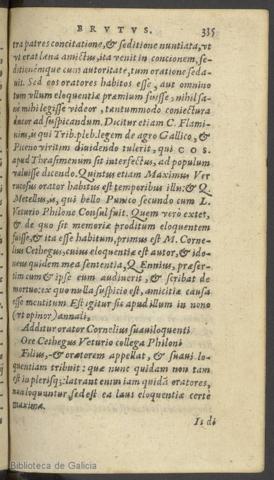 BRVTVS. 335
tra patres concitatione, & seditione nuntiata, vt
vt erat læna amictus, ita venit in concionem, se-
ditionémque cum autoritate, tum oratione seda-
uit. Sed eos oratores habitos esse, aut omnino
tum vllum eloquentiæ præmium fuisse, nihil sa-
nè mihi legisse videor, tantummodo coniectura
ducor ad suspicandum. Dicitur etiam C. Flami-
nius, is qui Trib. pleb. legem de agro Gallico, &
Piceno viritim diuidendo tulerit, qui COS.
apud Thrasimenum sit interfectus, ad populum
valuisse dicendo. Quintus etiam Maximus Ver
rucosus orator habitus est temporibus illis: & Q.
Metellus, is, qui bello Punico secundo cum L.
Veturio Philone Consul fuit. Quem verò extet,
& de quo sit memoriæ proditum eloquentem
fuisse, & ita esse habitum, primus est M. Corne-
lius Cethegus, cuius eloquentiæ est autor, & ido-
neus quidem mea sententia, Q. Ennius, præser-
tim cum & ipse eum audiuerit, & scribat de
mortuo: ex quo nulla suspicio est, amicitiæ causa
esse mentitum Est igitur sic apud illum in nono
(vt opinor) annali,
Additur orator Cornelius suauiloquenti
Ore Cethegus Veturio collega Philoni
Filius, & oratorem appellat, & suaui lo-
quentiam tribuit: quæ nunc quidam non tam
est in plerisq; latrant enim iam quidã oratores,
non loquuntur, sed est ea laus eloquentiæ certè
maxima.
Is di
Biblioteca de Galicia